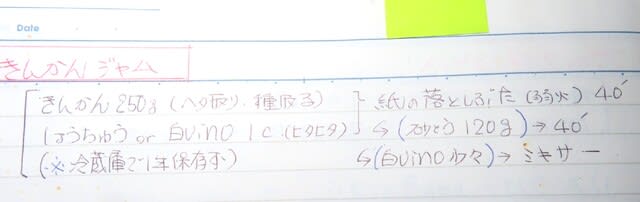 Date
きんかんジャム
きんかん 250g (ヘタ取り、種取る) 紙の落としぶた (弱火) 40′
しょうちゅう or 白vino 1c.(ヒタヒタ) ↳ (さとう 120g) → 40′
(※ 冷蔵庫で1年保存可) ↳ (白vino 少々) → ミキサー